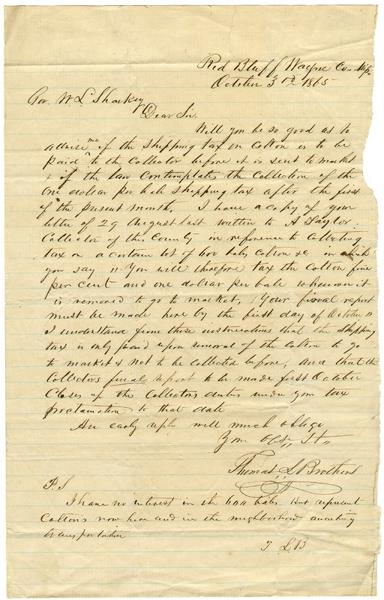 Red Bluff Wayne Co. Mi.
October 3rd 1865
Gov. W L Sharkey
Dear Sir
Will you be so good as to
advise me if the shipping tax on cotton is to be
paid to the Collector before it is sent to market
& if the law contemplates the collection of the
one dollar per bale shipping tax after the first
of the present month, I have a copy of your
letter of 29 August last written to A Taylor
Collector of this County in reference to collecting
tax on a certain lot of 600 bales cotton &c in which
you say "You will therefore tax the cotton five
per cent and one dollar per bale whenever it
is removed to go to market, Your final report
must be made here by the first day of October"
I understand from these instructions that the shipping
tax is only paid upon removal of the cotton to go
to market & not to be collected before, and that the
Collectors final report to be made first October
Closes up the Collectors duties under your tax
proclamation to that date
An early reply will much oblige
Your Obt Svt
Thomas S Brothers
P.S
I have no interest in the 600 bales but represent
Cottons now here and in the neighborhood awaiting
transportation
T S B